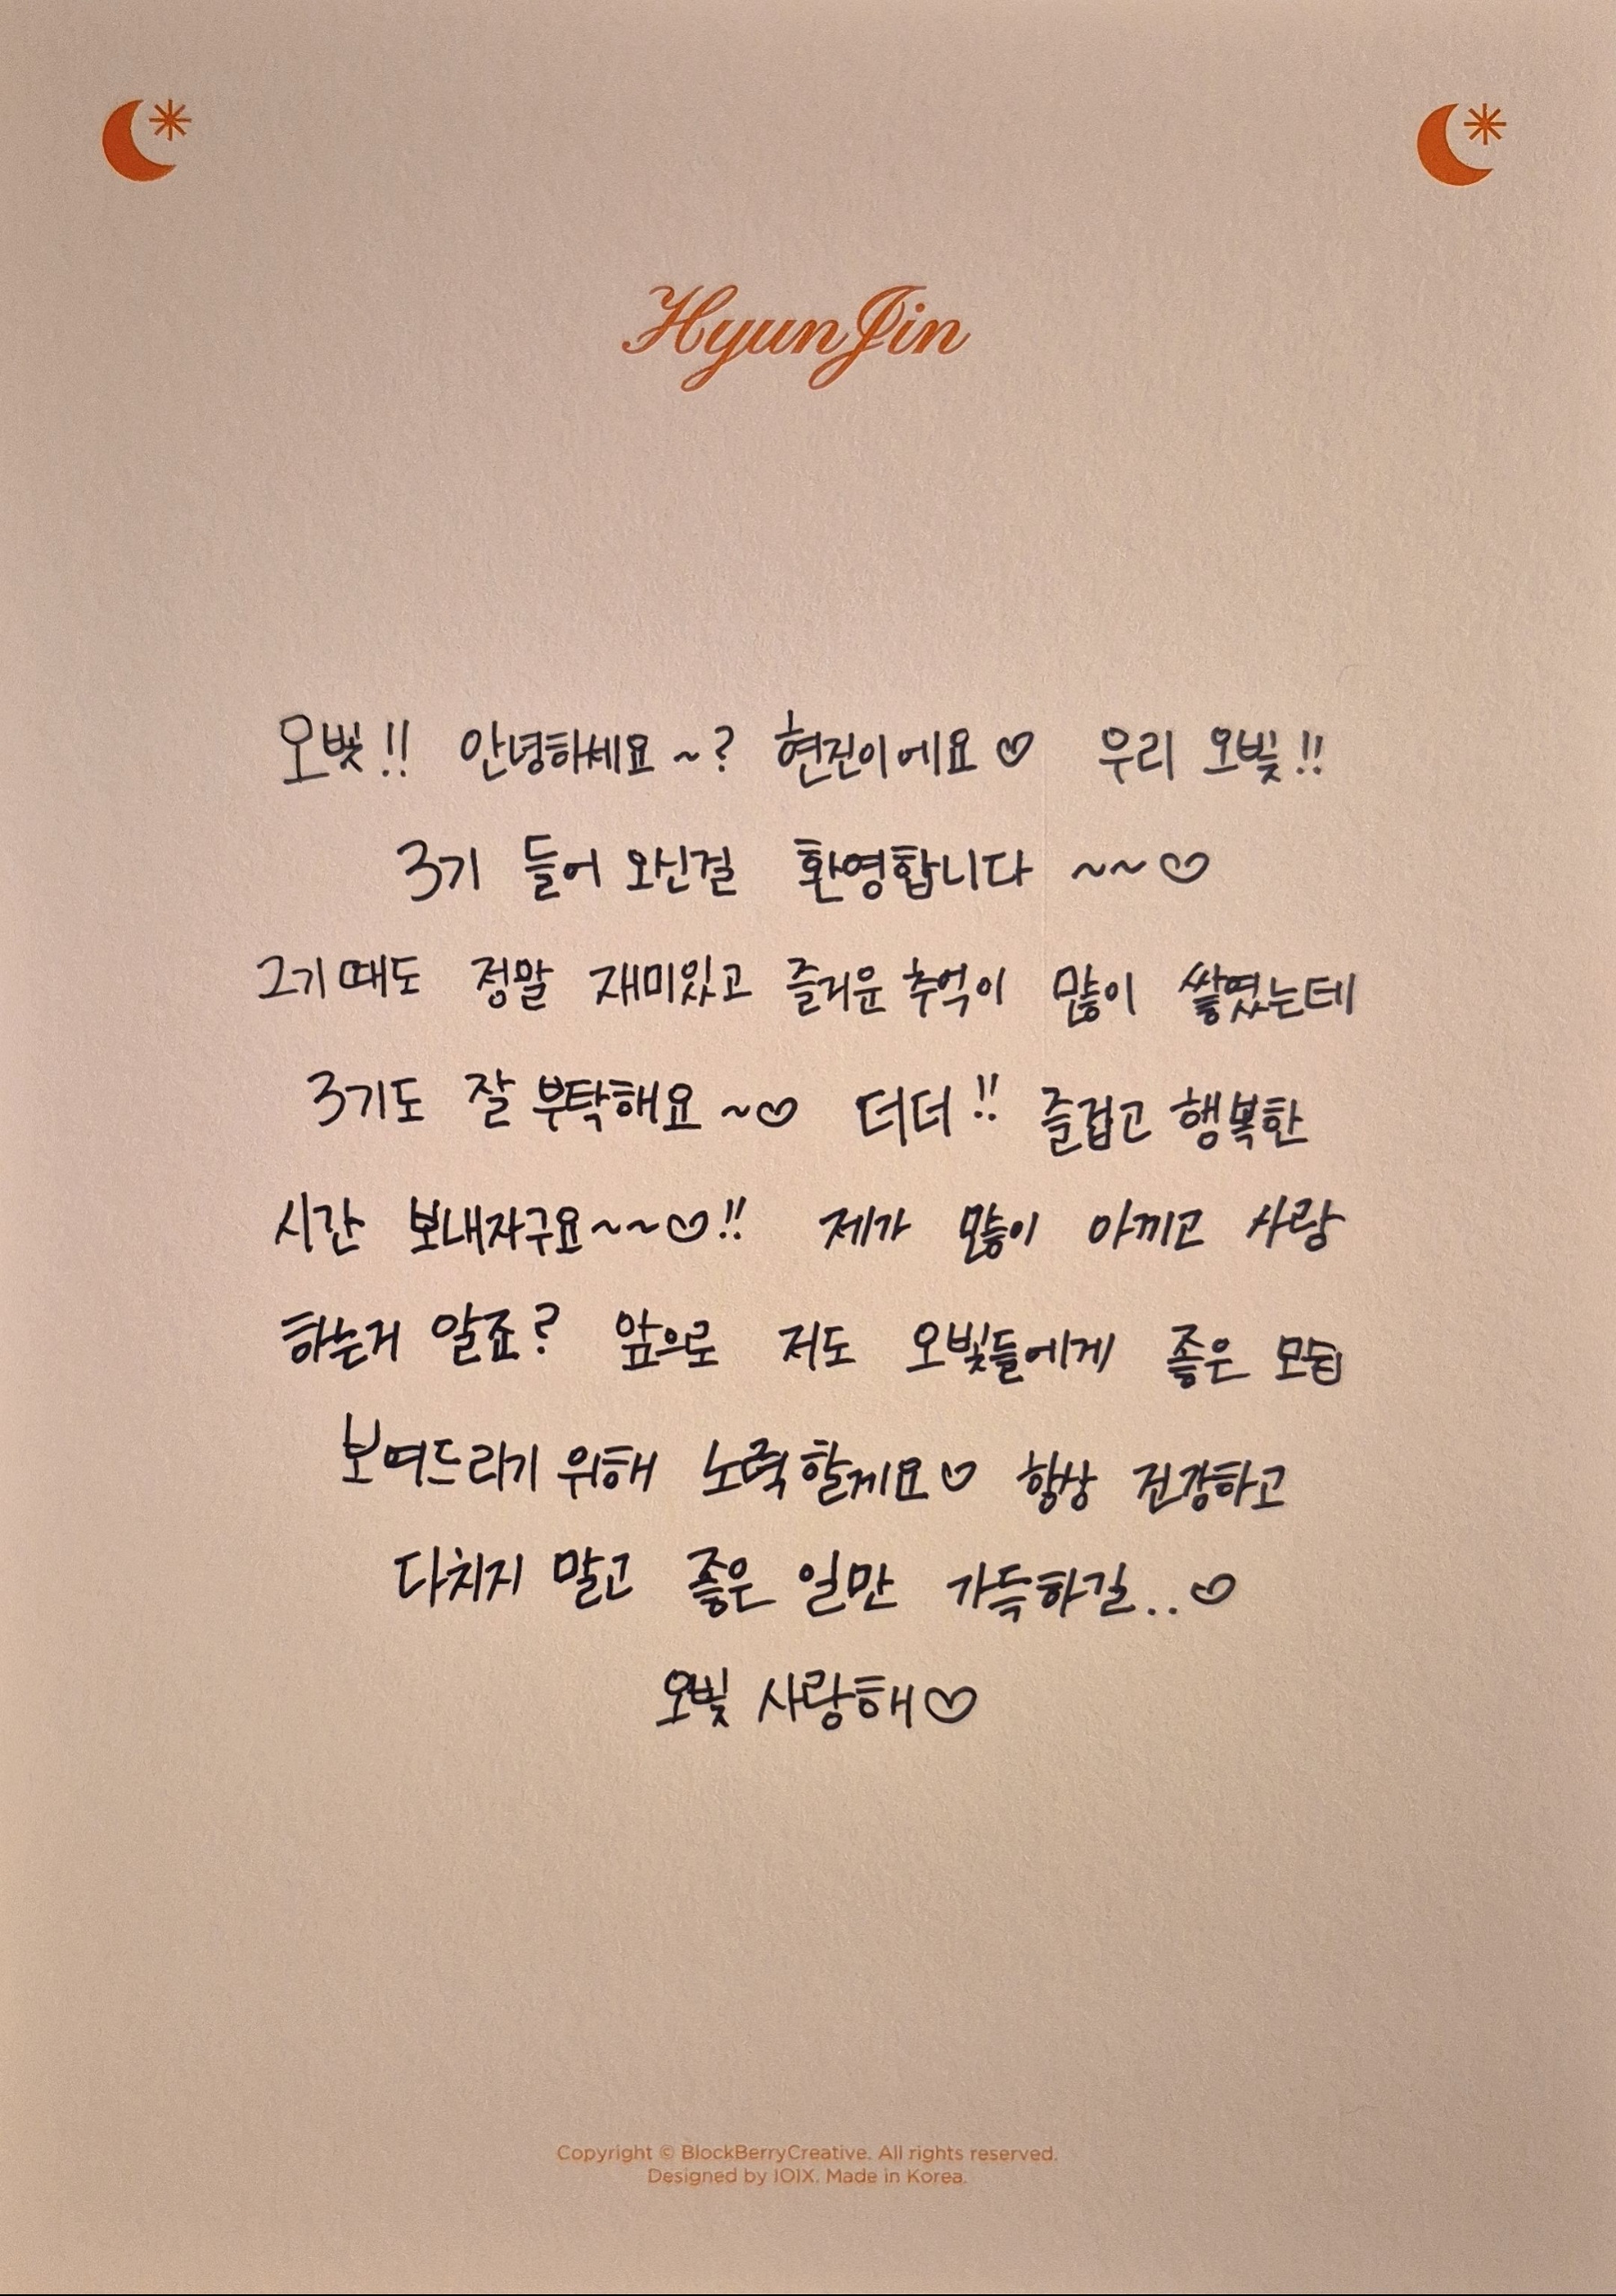 HyunJin
오빛!! 안녕하세요~? 현진이에요♡ 우리 오빛!!
3기 들어 오신걸 환영합니다 ~~♡
2기때도 정말 재미있고 즐거운 추억이 많이 쌓였는데
3기도 잘 부탁해요~♡ 더더!! 즐겁고 행복한
시간 보내자구요~~♡!! 제가 많이 아끼고 사랑
하는거 알죠? 앞으로 저도 오빛들에게 좋은 모습
보여드리기 위해 노력할께요♡ 항상 건강하고
다치지 말고 좋은 일만 가득하길..♡
오빛 사랑해♡
Copyright © BlockBerryCreative. All rights reserved.
Designed by IOIX. Made in Korea.